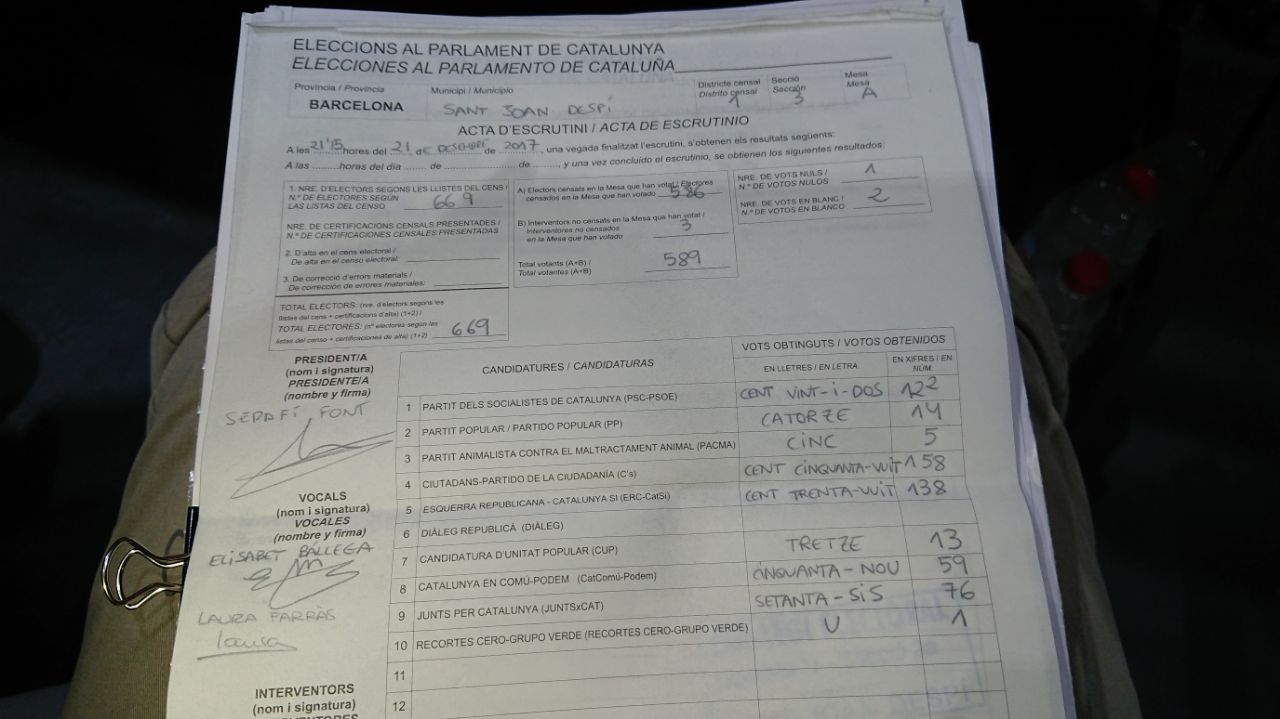 ELECCIONS AL PARLAMENT DE CATALUNYA
ELECCIONES AL PARLAMENTO DE CATALUÑA
Província / Provincia
BARCELONA
Municipi / Municipio
SANT JOAN DESPÍ
Districte censal
Distrito censal
1
Secció
Sección
3
Mesa
Mesa
A
ACTA D'ESCRUTINI / ACTA DE ESCRUTINIO
A les 21'15 hores del 21 de DESEMBRE de 2017, una vegada finalitzat l'escrutini, s'obtenen els resultats següents:
A las ........ horas del día ........ de ........ de ........, y una vez concluido el escrutinio, se obtienen los siguientes resultados:
1. NRE. D'ELECTORS SEGONS LES LLISTES DEL CENS /
N.º DE ELECTORES SEGÚN
LAS LISTAS DEL CENSO
669
NRE. DE CERTIFICACIONS CENSALS PRESENTADES /
N.º DE CERTIFICACIONES CENSALES PRESENTADAS
2. D'alta en el cens electoral /
De alta en el censo electoral:
3. De correcció d'errors materials /
De corrección de errores materiales:
TOTAL ELECTORS: (nre. d'electors segons les
llistes del cens + certificacions d'alta) (1+2) /
TOTAL ELECTORES: (nº electores según las
listas del censo + certificaciones de alta) (1+2)
669
A) Electors censats en la Mesa que han votat / Electores
censados en la Mesa que han votado
586
B) Interventors no censats en la Mesa que han votat /
Interventores no censados
en la Mesa que han votado
3
Total votants (A+B) /
Total votantes (A+B)
589
NRE. DE VOTS NULS /
N.º DE VOTOS NULOS
1
NRE. DE VOTS EN BLANC /
N.º DE VOTOS EN BLANCO
2
PRESIDENT/A
(nom i signatura)
PRESIDENTE/A
(nombre y firma)
SERAFÍ FONT
VOCALS
(nom i signatura)
VOCALES
(nombre y firma)
ELISABET BALLEGA
LAURA FARRÀS
laura
INTERVENTORS
(nom i signatura)
CANDIDATURES / CANDIDATURAS
VOTS OBTINGUTS / VOTOS OBTENIDOS
EN LLETRES / EN LETRA
EN XIFRES / EN NÚM.
1 PARTIT DELS SOCIALISTES DE CATALUNYA (PSC-PSOE) CENT VINT-I-DOS 122
2 PARTIT POPULAR / PARTIDO POPULAR (PP) CATORZE 14
3 PARTIT ANIMALISTA CONTRA EL MALTRACTAMENT ANIMAL (PACMA) CINC 5
4 CIUTADANS-PARTIDO DE LA CIUDADANÍA (C's) CENT CINQUANTA-VUIT 158
5 ESQUERRA REPUBLICANA - CATALUNYA SI (ERC-CatSi) CENT TRENTA-VUIT 138
6 DIÀLEG REPUBLICÀ (DIÀLEG)
7 CANDIDATURA D'UNITAT POPULAR (CUP) TRETZE 13
8 CATALUNYA EN COMÚ-PODEM (CatComú-Podem) CINQUANTA-NOU 59
9 JUNTS PER CATALUNYA (JUNTSxCAT) SETANTA-SIS 76
10 RECORTES CERO-GRUPO VERDE (RECORTES CERO-GRUPO VERDE) U 1
11
12